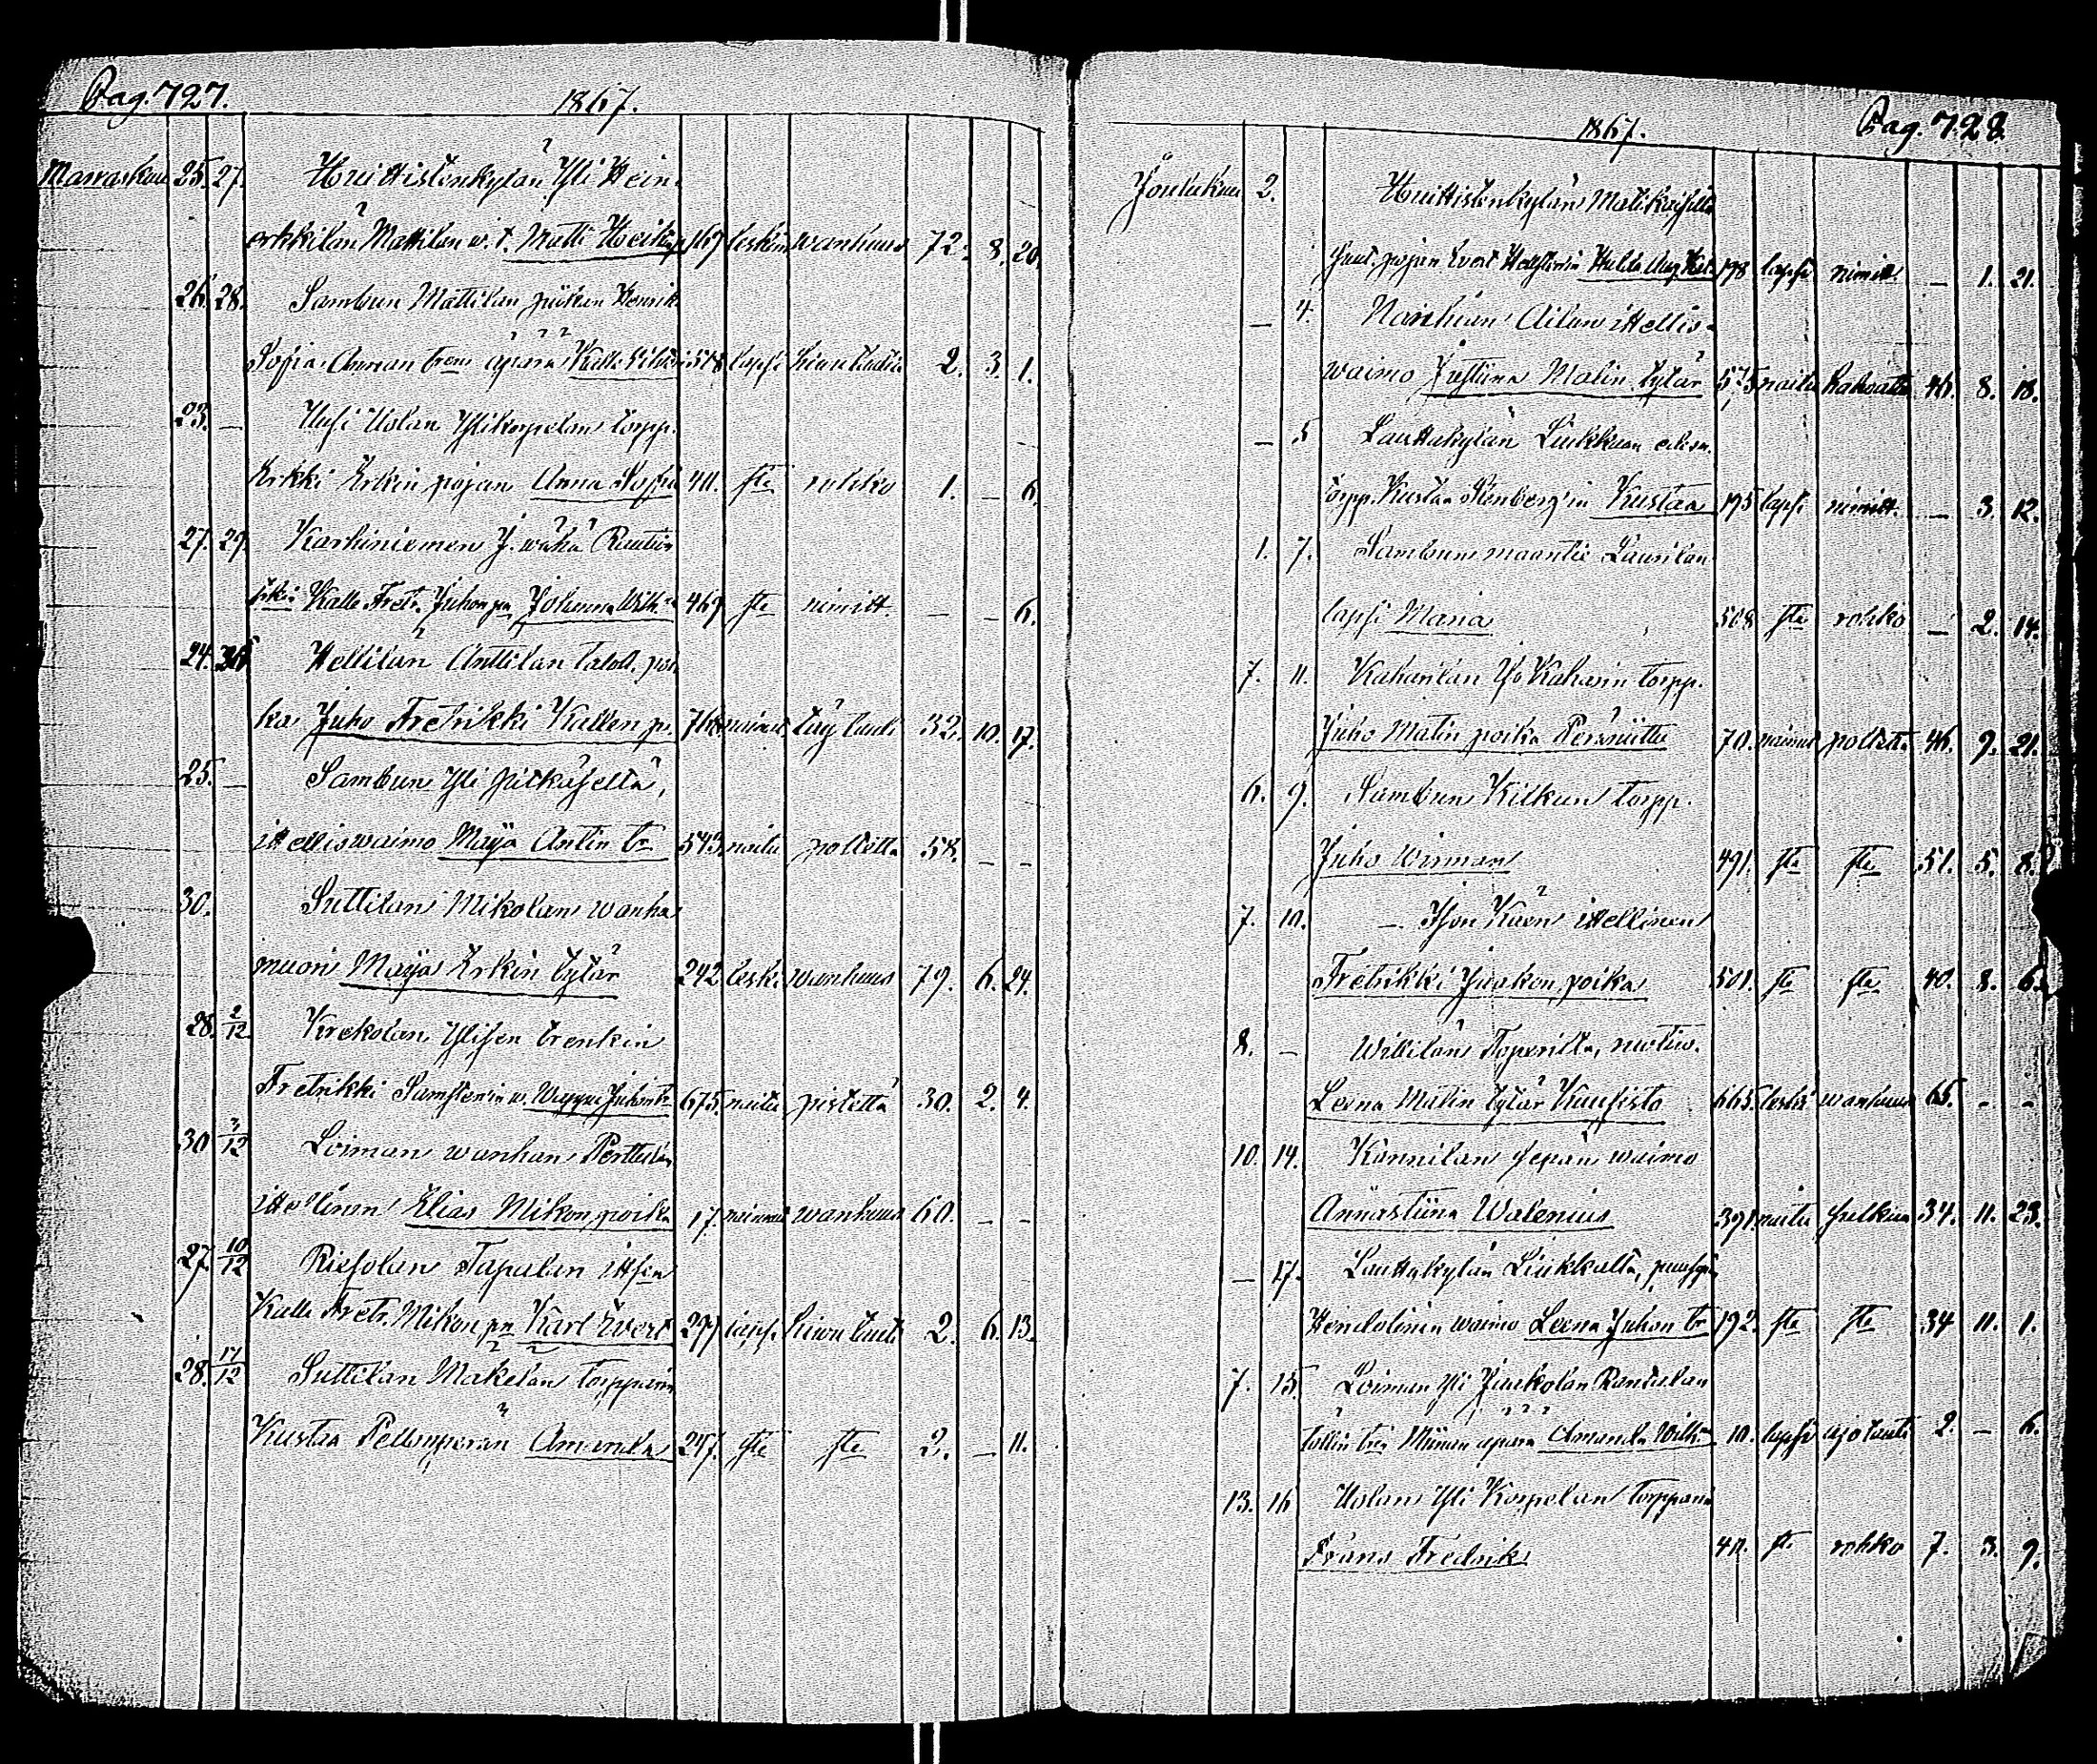 Pag. 727.
1867.
Marraskuu 25. 27. Huittistenkylän Yli Hein-
erkkilän Mattilan w. t. Matti Heikin p. 167 leskim. wanhuus 72. 8. 20.
26. 28. Sambun Mattilan piikan Henrik
Sofia Annan tren äpärä Kalle 518 lapsi hinku tauti 2. 3. 1.
23. — Uusi Uolan Ylikorpelan torpp.
Erkki Erkin pojan Anna Sofia 40. ste rohko 1. — 6.
27. 29. Karhiniemen J. wähä Rauti
Kalle Fretr. Juhon pn Johanna Wilh:na 469 ste nimitt. — — 6.
24. 30. Hellilän Anttilan talol. poi-
ka Juho Fretrikki Kallen p. 764 nainut täytauti 32. 10. 17.
25. — Sambun Yli pitkäseltä,
ittelliswaimo Maija Antin tr 543. naitu polletta 58. — —
30. Suttilan Mikolan wanha
muori Maija Erkin tytär 242. leski wanhuus 79. 6. 24.
28. 2/12 Krekolan Ylisen trenkin
Fretrikki w. Juhontr. 675. naitu pistettä 30. 2. 4.
30 3/12 Loiman wanhan Perttulan
ittellinen Elias Mikon poika 17. nainut wanhuus 60. — —
27. 10/12 Riesolan Tapulan ittsen
Kalle Fretr. Mikon pn Karl Evert 297 laps. hinku tauti 2. 6. 13.
28. 17/12 Suttilan Mäkelän torpparin
Kustaa Pellonperän Amanda 247. ste ste 2. — 11.
1867.
Pag. 728.
Joulukuu 2. Huittistenkylän Matikaiselta
pojan Evert Hellstenin Hulda Aug. 198 lapsi nimitt. — 1. 21.
— 4. Nanhian Ailan ittellis-
waimo Justiina Matin tytär 575 naitu kakoatta 46. 8. 18.
— 5 Lauttakylän Liukkuan edesm.
torpp. Kustaa Stenberg'in Kustaa 195 lapsi nimitt. — 3. 12.
1. 7. Sambun maantie Laurilan
lapsi Maria 508 ste rohko — 2. 14.
7. 11. Kaharilan Yso Kaharin torpp.
Juho Matin poika Peräniittu 70. nainut polletta 46. 9. 21.
6. 9. Sambun Kilkun torpp.
Juho Wirman 491. ste ste 51. 5. 8.
7. 10. — Yson Käen ittellinen
Fretrikki Jaakon poika 501. ste ste 40. 8. 6.
8. — Willilän Toperilta, ruotiw.
Leena Matin tytär Kuusisto 665. leski wanhuus 65. — —
10. 14. Kännilän sepän waimo
Annastiina Walenius 391. naitu halkua 34. 11. 23.
— 17. Lauttakylän Liukkalta,
Hendelinin waimo Leena Juhon tr 192. ste ste 34 11. 1.
7. 15. Loiman Yli Jaakolan Rantalan
tällin tren Miinan äpärä Amanda Wilh:na 10. lapsi ajotauti 2. — 6.
13. 16 Uolan Yli Korpelan torpparin
Frans Fredrik 40. ste rohko 7. 3. 9.